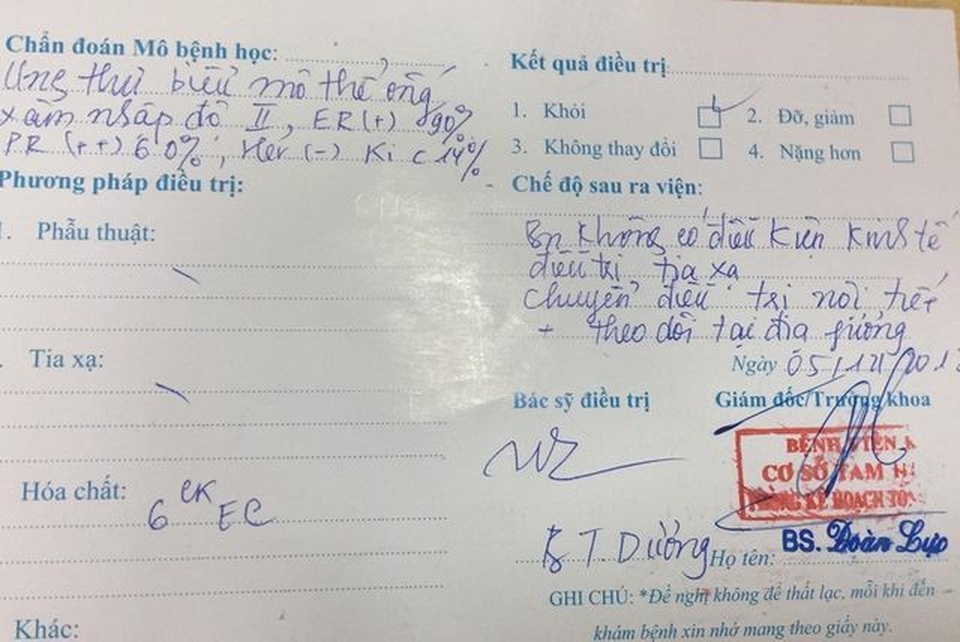 Chẩn đoán Mô bệnh học:
Ung thư biểu mô thể ống
xâm nhập độ II, ER(+) 90%
PR (++) 60%, Her (-) Ki 14%
Phương pháp điều trị:
1. Phẫu thuật:
Tia xạ:
Hóa chất: 6 CK EC
Khác:
Kết quả điều trị
1. Khỏi
2. Đỡ, giảm
3. Không thay đổi
4. Nặng hơn
Chế độ sau ra viện:
Bn không có điều kiện kinh tế
điều trị tia xạ
Chuyển điều trị nội tiết
+ theo dõi tại địa phương
Ngày 05/12/201
Bác sỹ điều trị
Giám đốc/Trưởng khoa
BỆNH VIỆN K
CƠ SỞ TAM H
PHÒNG KẾ HOẠCH TỔN
BS T Dương
Họ tên: BS. Đoàn Lực
GHI CHÚ: *Đề nghị không để thất lạc, mỗi khi đến
khám bệnh xin nhớ mang theo giấy này.